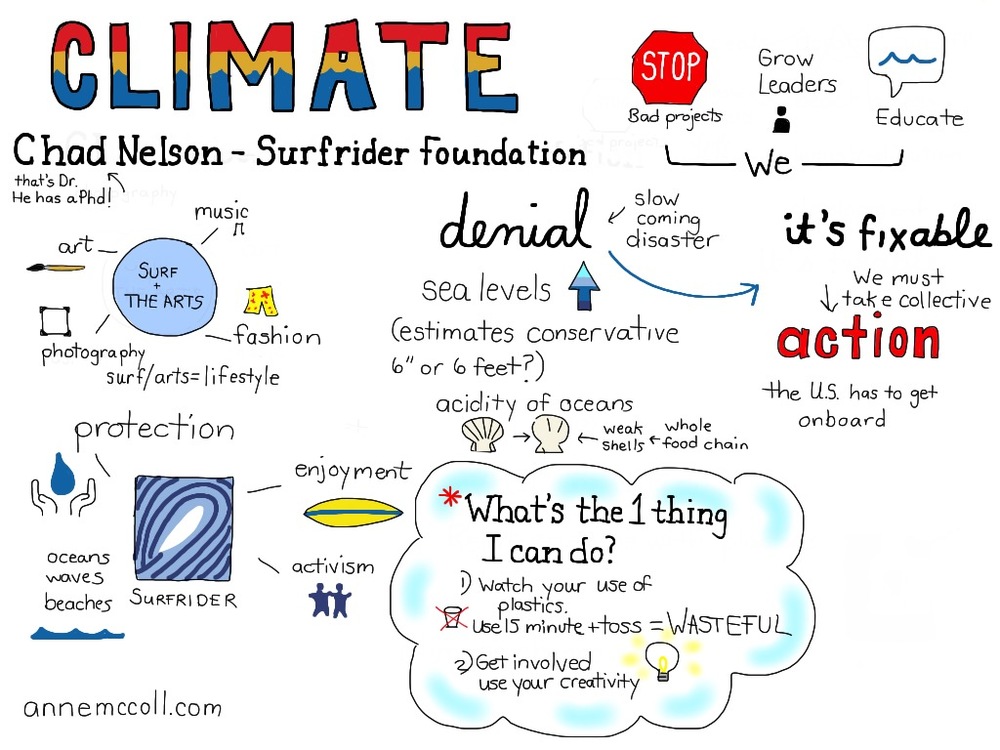 CLIMATE
Chad Nelson - Surfrider Foundation
that's Dr.
He has a Phd!
STOP
Bad projects
Grow
Leaders
Educate
We
music
art
SURF
+
THE ARTS
photography
fashion
surf/arts=lifestyle
denial
slow
coming
disaster
sea levels
(estimates conservative
6" or 6 feet?)
acidity of oceans
weak
shells
whole
food chain
it's fixable
We must
take collective
action
the U.S. has to get
onboard
protection
enjoyment
activism
oceans
waves
beaches
SURFRIDER
* What's the 1 thing
I can do?
1) Watch your use of
plastics.
Use 15 minute + toss = WASTEFUL
2) Get involved
use your creativity
annemccoll.com